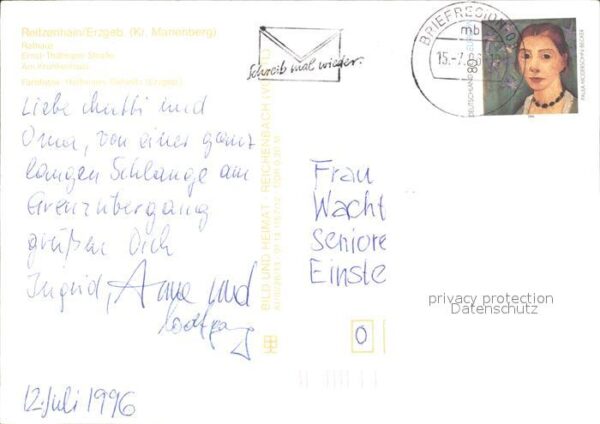 Reitzenhain/Erzgeb. (Kr. Marienberg)
Rathaus
Ernst-Thälmann-Straße
Am Krankenhaus
Liebe Mutti und
Oma, von einer ganz
langen Schlange am
Grenzübergang
grüßen Dich
Ingrid, Anne und
Wolfgang
12. Juli 1996
BILD UND HEIMAT REICHENBACH (VOGTL)
Schreib mal wieder.
BRIEFREGION
mb
15.-7.
80
DEUTSCHE
PAULA MODERSOHN-BECKER
Frau
Wacht
Seniore
Einste
0
privacy protection
Datenschutz